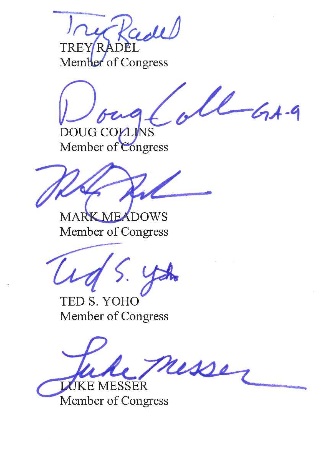 Trey Radel
TREY RADEL
Member of Congress
Doug Coll GA-9
DOUG COLLINS
Member of Congress
MARK MEADOWS
Member of Congress
Ted S. Yoho
TED S. YOHO
Member of Congress
Luke Messer
LUKE MESSER
Member of Congress